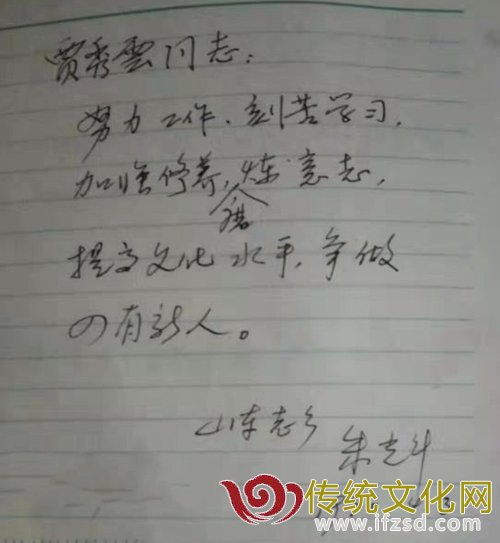 贾秀雲同志：
努力工作、刻苦学习，
加强修养，磨炼意志，
提高文化水平，争做
四有新人。
山东老乡
朱光斗
传统文化网
www.lfzsd.com